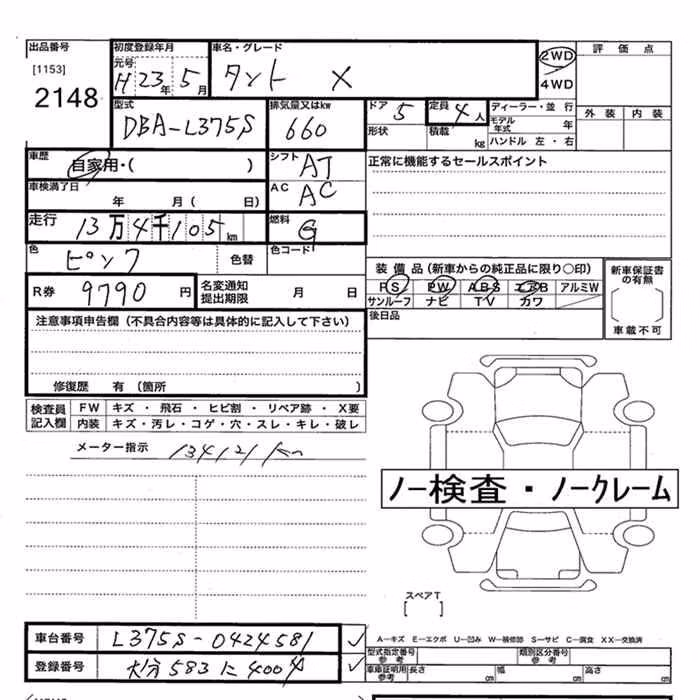 出品番号 初度登録年月 車名・グレード 評価点
[1153] 元号 H 23年 5月 タント X 2WD
2148 4WD
型式 排気量又はkw ドア 5 定員 4人 ディーラー・並行 外装 内装
DBA-L375S 660 形状 積載 kg モデル年式 年
ハンドル 左・右
車歴 自家用・( ) シフト AT 正常に機能するセールスポイント
車検満了日 年 月( 日) AC AC
走行 13万4千105km 燃料 G
色 ピンク 色替 色コード
装備品(新車からの純正品に限り○印) 新車保証書の有無
R券 9790円 名変通知提出期限 月 日 PS PW ABS エアB アルミW
サンルーフ ナビ TV カワ
後日品 車載不可
注意事項申告欄(不具合内容等は具体的に記入して下さい)
修復歴 有(箇所 )
検査員記入欄 FW キズ・飛石・ヒビ割・リペア跡・X要
内装 キズ・汚レ・コゲ・穴・スレ・キレ・破レ
メーター指示 134121km
ノー検査・ノークレーム
スペアT
[ ]
車台番号 L375S-0424581 A-キズ E-エクボ U-凹み W-補修跡 S-サビ C-腐食 XX-交換済
型式指定番号 参考 類別区分番号 参考
登録番号 大分583に4004 車庫証明 参考 長さ cm 幅 cm 高さ cm